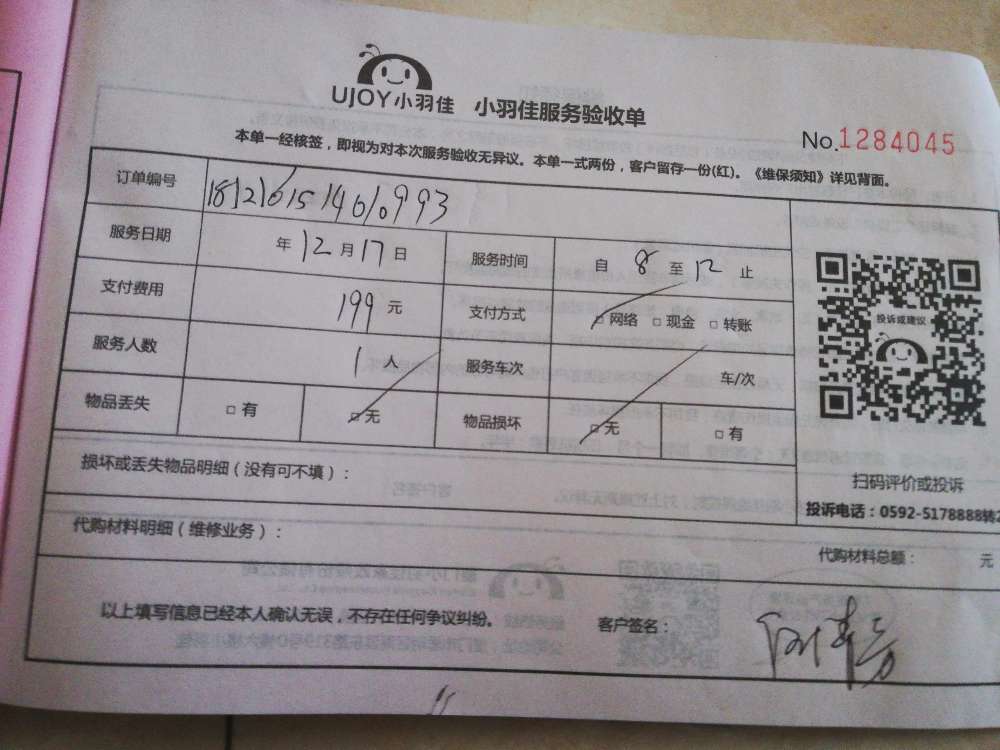 UJOY小羽佳 小羽佳服务验收单
No.1284045
本单一经核签，即视为对本次服务验收无异议。本单一式两份，客户留存一份(红)。《维保须知》详见背面。
订单编号 1812161514610993
服务日期 年12月17日 服务时间 自8至12止
支付费用 199元 支付方式 □网络 □现金 □转账
服务人数 1人 服务车次 车/次
物品丢失 □有 □无 物品损坏 □无 □有
投诉或建议
扫码评价或投诉
损坏或丢失物品明细（没有可不填）：
投诉电话：0592-5178888转2
代购材料明细（维修业务）： 代购材料总额： 元
以上填写信息已经本人确认无误，不存在任何争议纠纷。 客户签名：